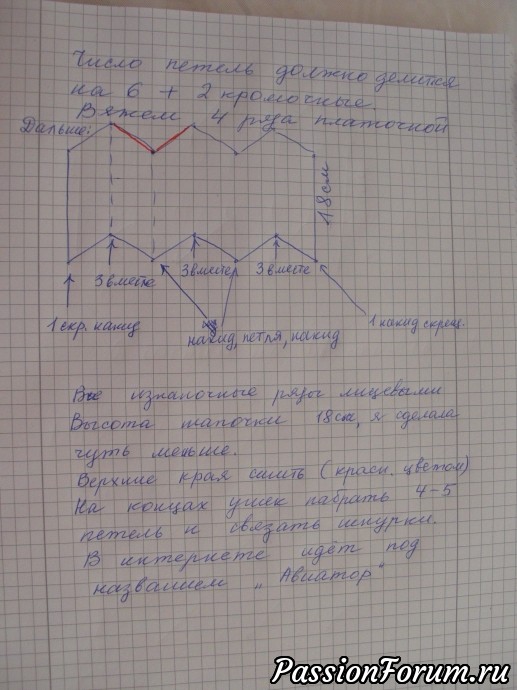 Число петель должно делится
на 6 + 2 кромочные.
Вяжем 4 ряда платочной
Дальше:
18см
3 вместе
3 вместе
3 вместе
1 скр. накид
накид, петля, накид
1 накид скрещ.
Все изнаночные ряды лицевыми
Высота шапочки 18см, я сделала
чуть меньше.
Верхние края сшить (красн. цветом)
На концах ушек набрать 4-5
петель и связать шнурки.
В интернете идёт под
названием „Авиатор"
PassionForum.ru